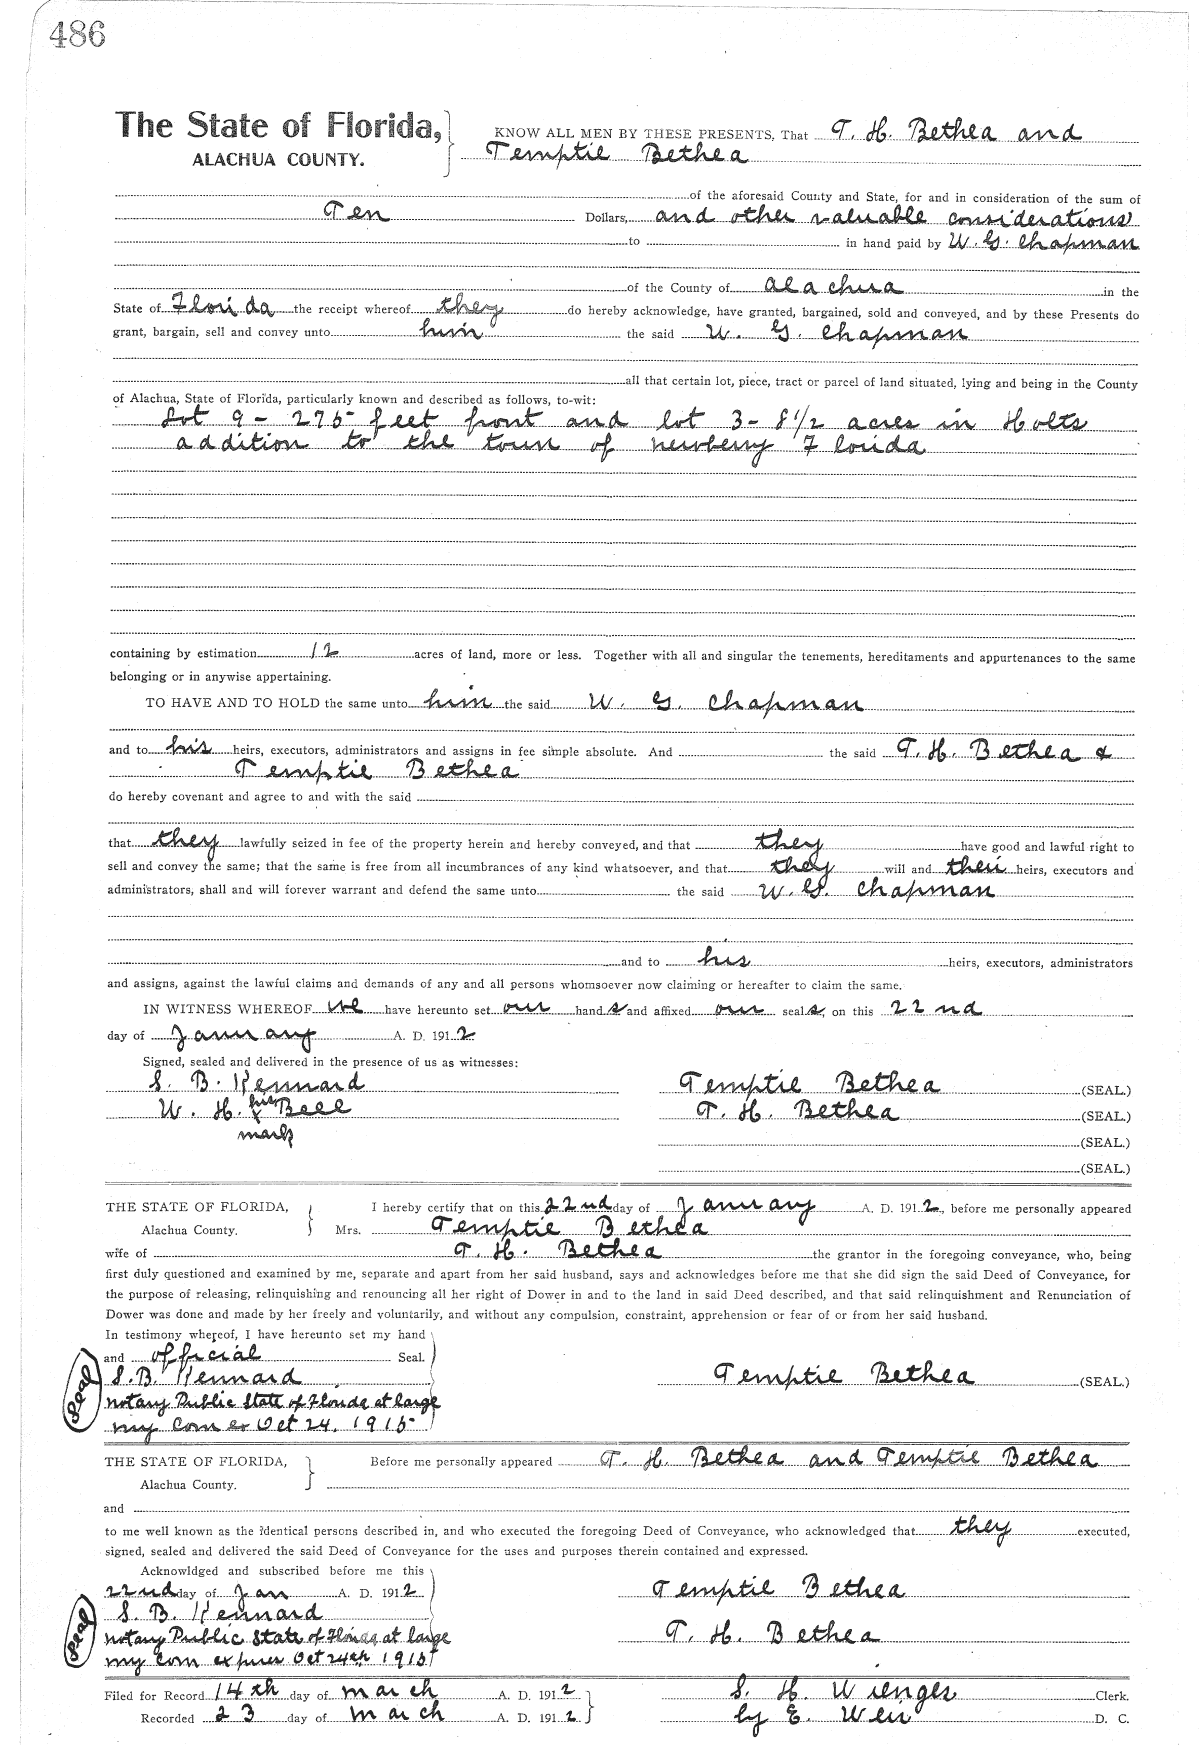 486
The State of Florida, KNOW ALL MEN BY THESE PRESENTS, That T. H. Bethea and
ALACHUA COUNTY. Temptie Bethea
of the aforesaid County and State, for and in consideration of the sum of
Ten Dollars, and other valuable considerations
to in hand paid by W. G. Chapman
of the County of Alachua in the
State of Florida the receipt whereof they do hereby acknowledge, have granted, bargained, sold and conveyed, and by these Presents do
grant, bargain, sell and convey unto him the said W. G. Chapman
all that certain lot, piece, tract or parcel of land situated, lying and being in the County
of Alachua, State of Florida, particularly known and described as follows, to-wit:
Lot 9 - 275 feet front and lot 3 - 8 1/2 acres in Holts
addition to the town of newberry Florida
containing by estimation 12 acres of land, more or less. Together with all and singular the tenements, hereditaments and appurtenances to the same
belonging or in anywise appertaining.
TO HAVE AND TO HOLD the same unto him the said W. G. Chapman
and to his heirs, executors, administrators and assigns in fee simple absolute. And the said T. H. Bethea &
Temptie Bethea
do hereby covenant and agree to and with the said
that they lawfully seized in fee of the property herein and hereby conveyed, and that they have good and lawful right to
sell and convey the same; that the same is free from all incumbrances of any kind whatsoever, and that they will and their heirs, executors and
administrators, shall and will forever warrant and defend the same unto the said W. G. Chapman
and to his heirs, executors, administrators
and assigns, against the lawful claims and demands of any and all persons whomsoever now claiming or hereafter to claim the same.
IN WITNESS WHEREOF we have hereunto set our hands and affixed our seals, on this 22nd
day of January A. D. 1912
Signed, sealed and delivered in the presence of us as witnesses:
S. B. Kennard Temptie Bethea (SEAL.)
W. H. his x Bell T. H. Bethea (SEAL.)
mark (SEAL.)
(SEAL.)
THE STATE OF FLORIDA, I hereby certify that on this 22nd day of January A. D. 1912, before me personally appeared
Alachua County. Mrs. Temptie Bethea
wife of T. H. Bethea the grantor in the foregoing conveyance, who, being
first duly questioned and examined by me, separate and apart from her said husband, says and acknowledges before me that she did sign the said Deed of Conveyance, for
the purpose of releasing, relinquishing and renouncing all her right of Dower in and to the land in said Deed described, and that said relinquishment and Renunciation of
Dower was done and made by her freely and voluntarily, and without any compulsion, constraint, apprehension or fear of or from her said husband.
In testimony whereof, I have hereunto set my hand
and official Seal.
Seal S. B. Kennard Temptie Bethea (SEAL.)
notary Public State of Florida at large
my Com ex Oct 24, 1915
THE STATE OF FLORIDA, Before me personally appeared T. H. Bethea and Temptie Bethea
Alachua County.
and
to me well known as the identical persons described in, and who executed the foregoing Deed of Conveyance, who acknowledged that they executed,
signed, sealed and delivered the said Deed of Conveyance for the uses and purposes therein contained and expressed.
Acknowldged and subscribed before me this
22nd day of Jan A. D. 1912 Temptie Bethea
S. B. Kennard
Seal notary Public State of Florida at large T. H. Bethea
my com expires Oct 24th 1915
Filed for Record 14th day of march A. D. 1912 S. H. Wienges Clerk.
Recorded 23 day of march A. D. 1912 by E. Weir D. C.